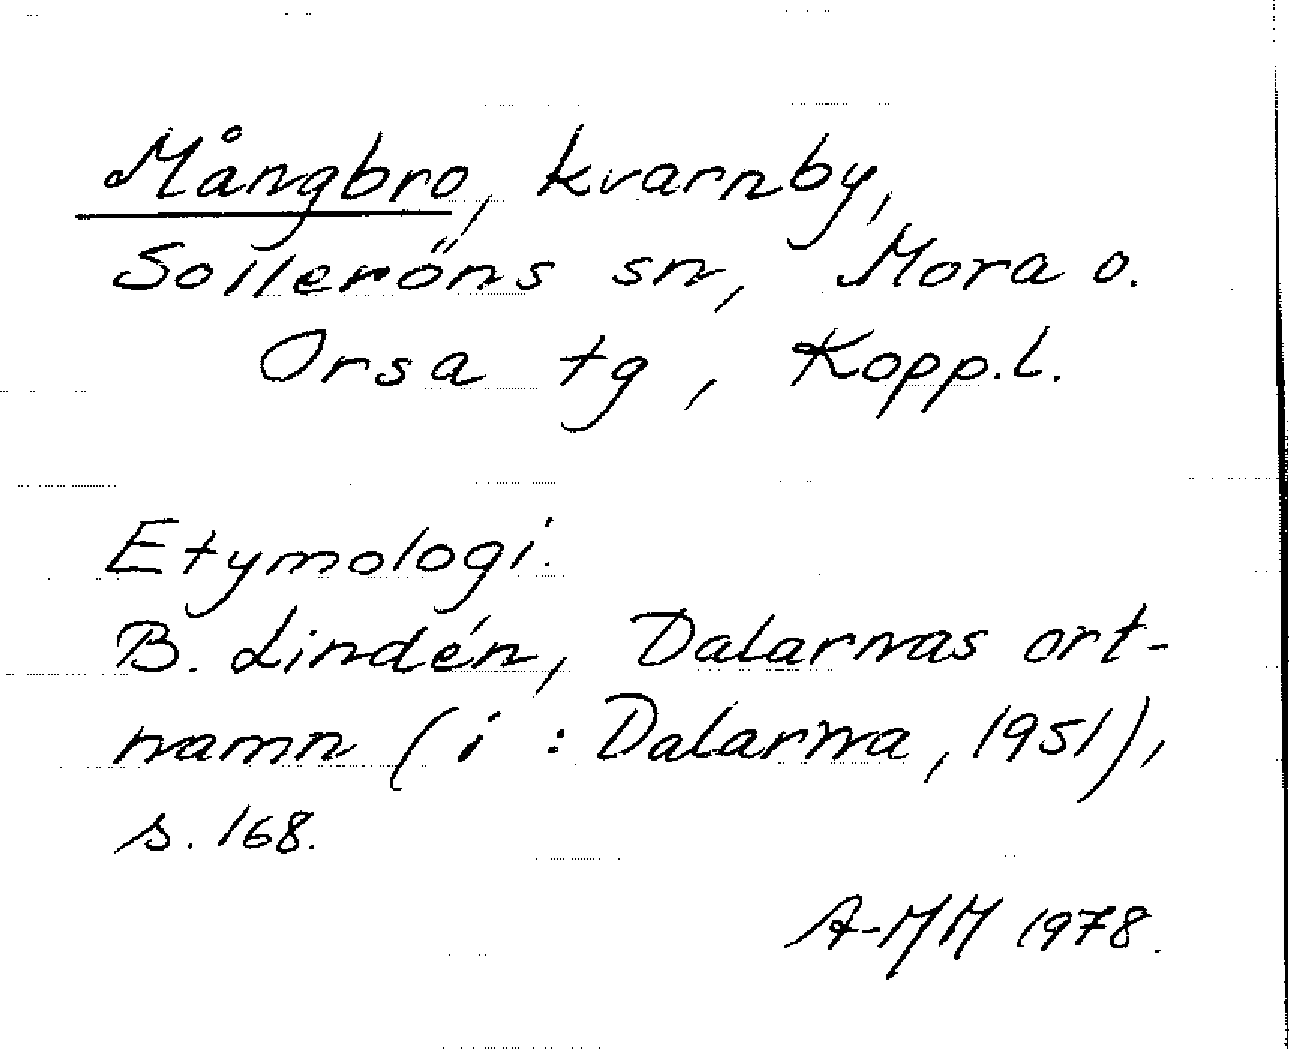 Mångbro, kvarnby,
Solleröns sn, Mora o.
Orsa tg, Kopp.l.
Etymologi.
B. Lindén, Dalarnas ort-
namn (i : Dalarna, 1951),
s. 168.
A-MM 1978.